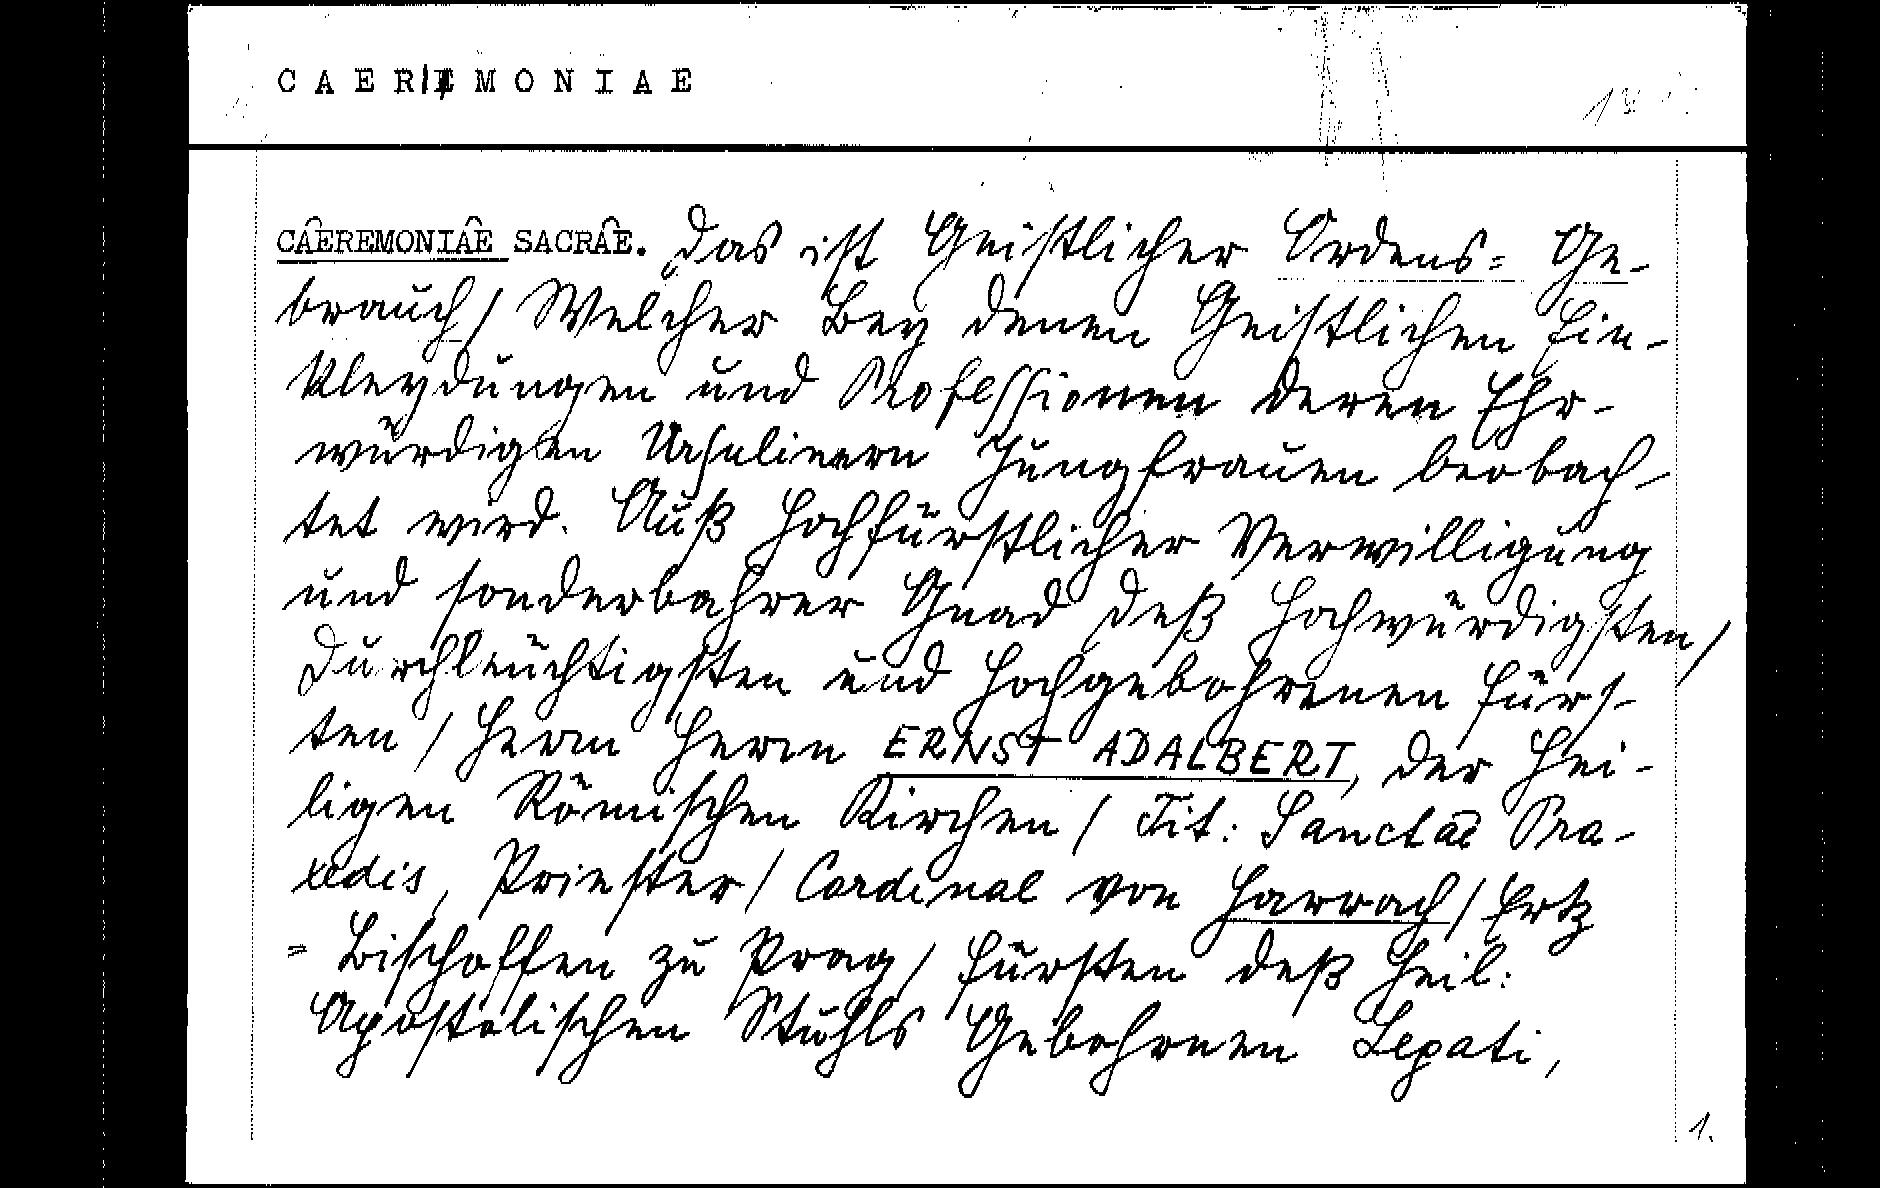 CAEREMONIAE
CAEREMONIAE SACRAE. Das ist Geistlicher Ordens= Ge-
brauch/ Welcher Bey denen Geistlichen Ein-
kleydungen und Professionen deren Ehr-
würdigen Ursulinern Jungfrauen beobach-
tet wird. Auß Hochfürstlicher Verwilligung
und sonderbahrer Gnad deß Hochwürdigsten/
Durchleüchtigsten und Hochgebohrenen Fürs-
ten/ Herrn Herrn ERNST ADALBERT, der Hei-
ligen Römischen Kirchen/ Tit: Sanctae Pra-
xedis, Priester/ Cardinal von Harrach/ Ertz
=Bischoffen zu Prag/ Fürsten deß Heil:
Apostolischen Stuhls Gebohrnen Legati,
1.